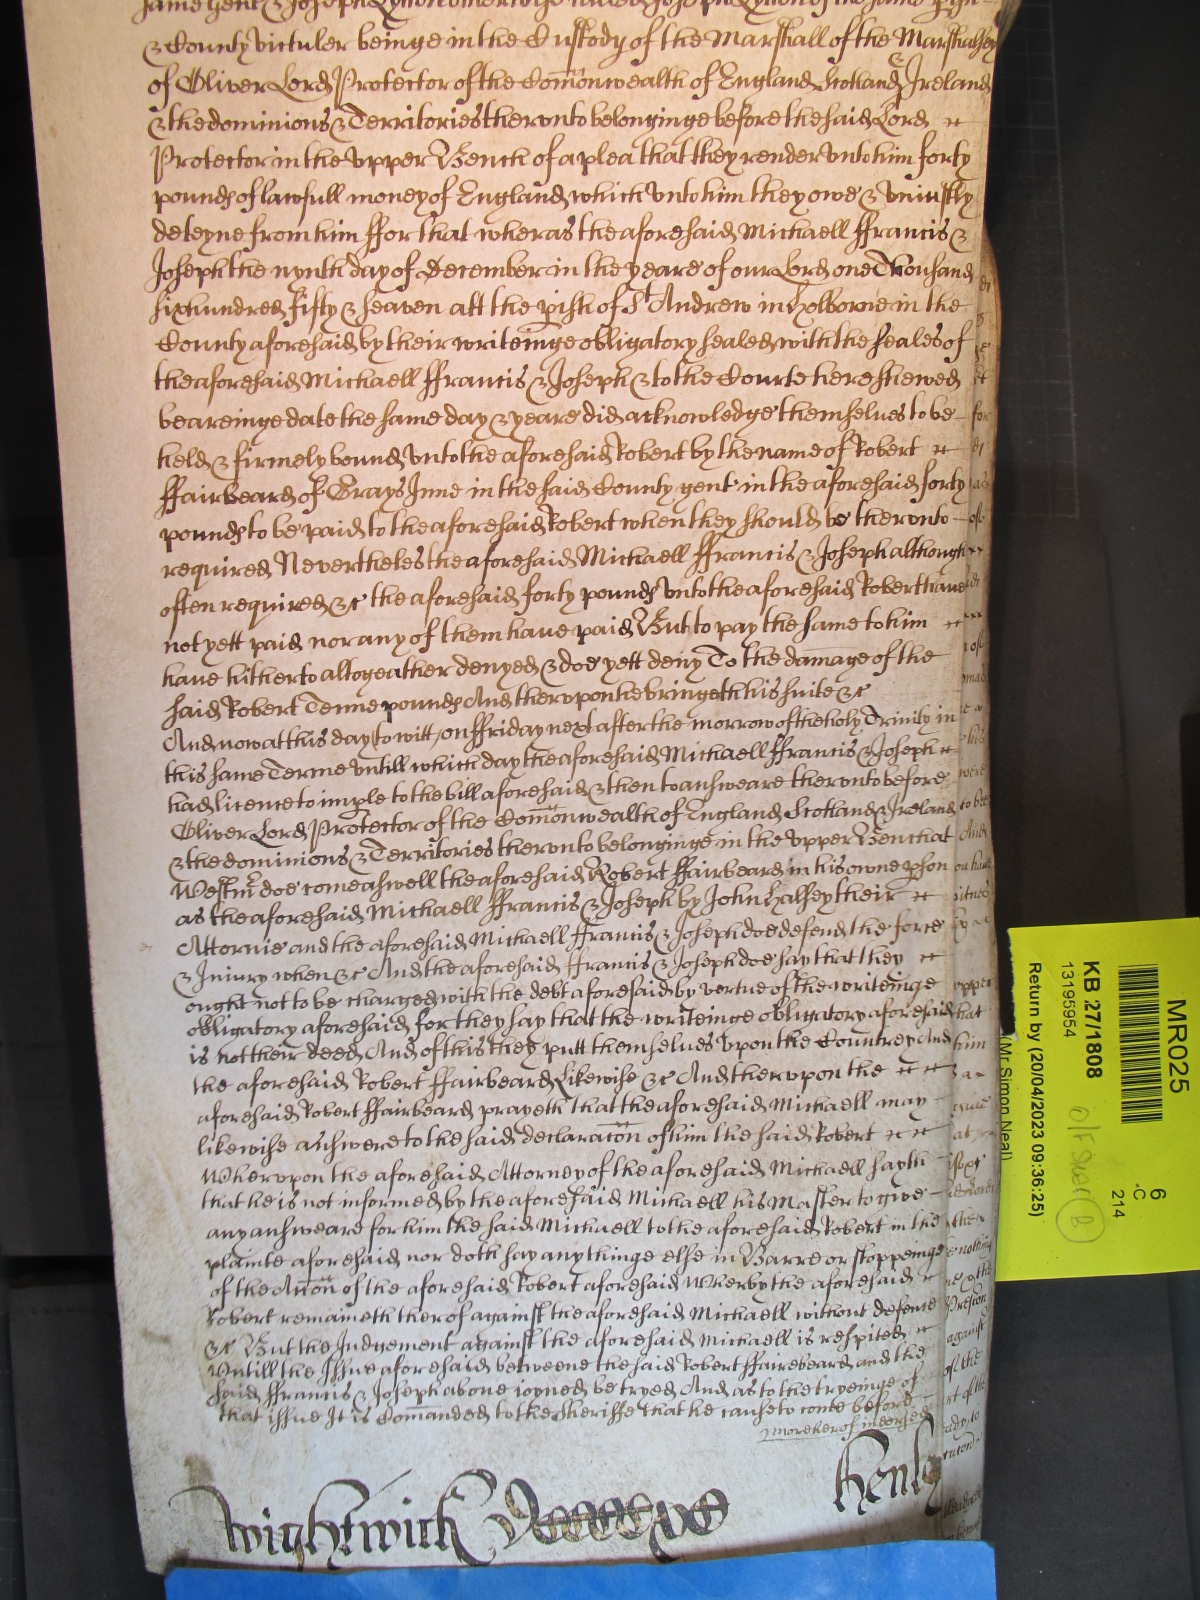 same gent & Joseph Lynton otherwise called Joseph Lynton of the same pish
& County victuler beinge in the Custody of the Marshall of the Marshalsey
of Oliver Lord Protector of the Comonwealth of England Scotland & Ireland
& the dominions & Territories therunto belonginge before the said Lord
Protector in the upper Bench of a plea that they render unto him forty
pounds of lawfull money of England which unto him they owe & uniustly
deteyne from him ffor that wheras the aforesaid Michaell ffrancis &
Joseph the nynth day of December in the yeare of our Lord one Thousand
six hundred fifty & seaven att the pish of St Andrew in Holborne in the
County aforesaid by their writeinge obligatory sealed with the seales of
the aforesaid Michaell ffrancis & Joseph & to the Courte here shewed
beareinge date the same day & yeare did acknowledge themselves to be
held & firmely bound unto the aforesaid Robert by the name of Robert
ffairbeard of Grays Inne in the said County gent in the aforesaid forty
pounds to be paid to the aforesaid Robert when they should be therunto
required Nevertheles the aforesaid Michaell ffrancis & Joseph although
often required &c the aforesaid forty pounds unto the aforesaid Robert have
not yett paid nor any of them have paid But to pay the same to him
have hitherto altogeather denyed & doe yett deny To the damage of the
said Robert Tenne pounds And therupon he bringeth his suite &c
And now at this day to witt, on ffriday next after the morrow of the holy Trinity in
this same Terme untill which day the aforesaid Michaell ffrancis & Joseph
had licence to imple to the bill aforesaid & then to answeare therunto before
Oliver Lord Protector of the Comonwealth of England Scotland & Ireland
& the dominions & Territories therunto belonginge in the upper Bench at
Westmr doe come aswell the aforesaid Robert ffairbeard in his owne pson
as the aforesaid Michaell ffrancis & Joseph by John Halsey their
Attornie and the aforesaid Michaell ffrancis & Joseph doe defend the force
& Iniury when &c And the aforesaid ffrancis & Joseph doe say that they
ought not to be charged with the debt aforesaid by vertue of the writeinge
obligatory aforesaid for they say that the writeinge obligatory aforesaid
is not their deed And of this they putt themselves upon the Countrey And
the aforesaid Robert ffairbeard Likewise &c And therupon the
aforesaid Robert ffairbeard prayeth that the aforesaid Michaell may
likewise answere to the said declaracon of him the said Robert
Wherupon the aforesaid Attorney of the aforesaid Michaell sayth
that he is not informed by the aforesaid Michaell his Master to give
any answeare for him the said Michaell to the aforesaid Robert in the
plainte aforesaid nor doth say any thinge else in Barre or stoppeinge
of the Accon of the aforesaid Robert aforesaid Wherby the aforesaid
Robert remaineth therof against the aforesaid Michaell without defence
&c But the Judgement against the aforesaid Michaell is respited
Untill the Issue aforesaid betweene the said Robert ffairebeard and the
said ffrancis & Joseph above ioyned be tryed And as to the tryeinge of
that issue It is Comanded to the Sheriffe that he cause to come before
more herof indorsed
Wightwick
Henly
MR025
6
-C
214
KB 27/1808
13195954
Return by (20/04/2023 09:36:25)
(Mr Simon Neal)